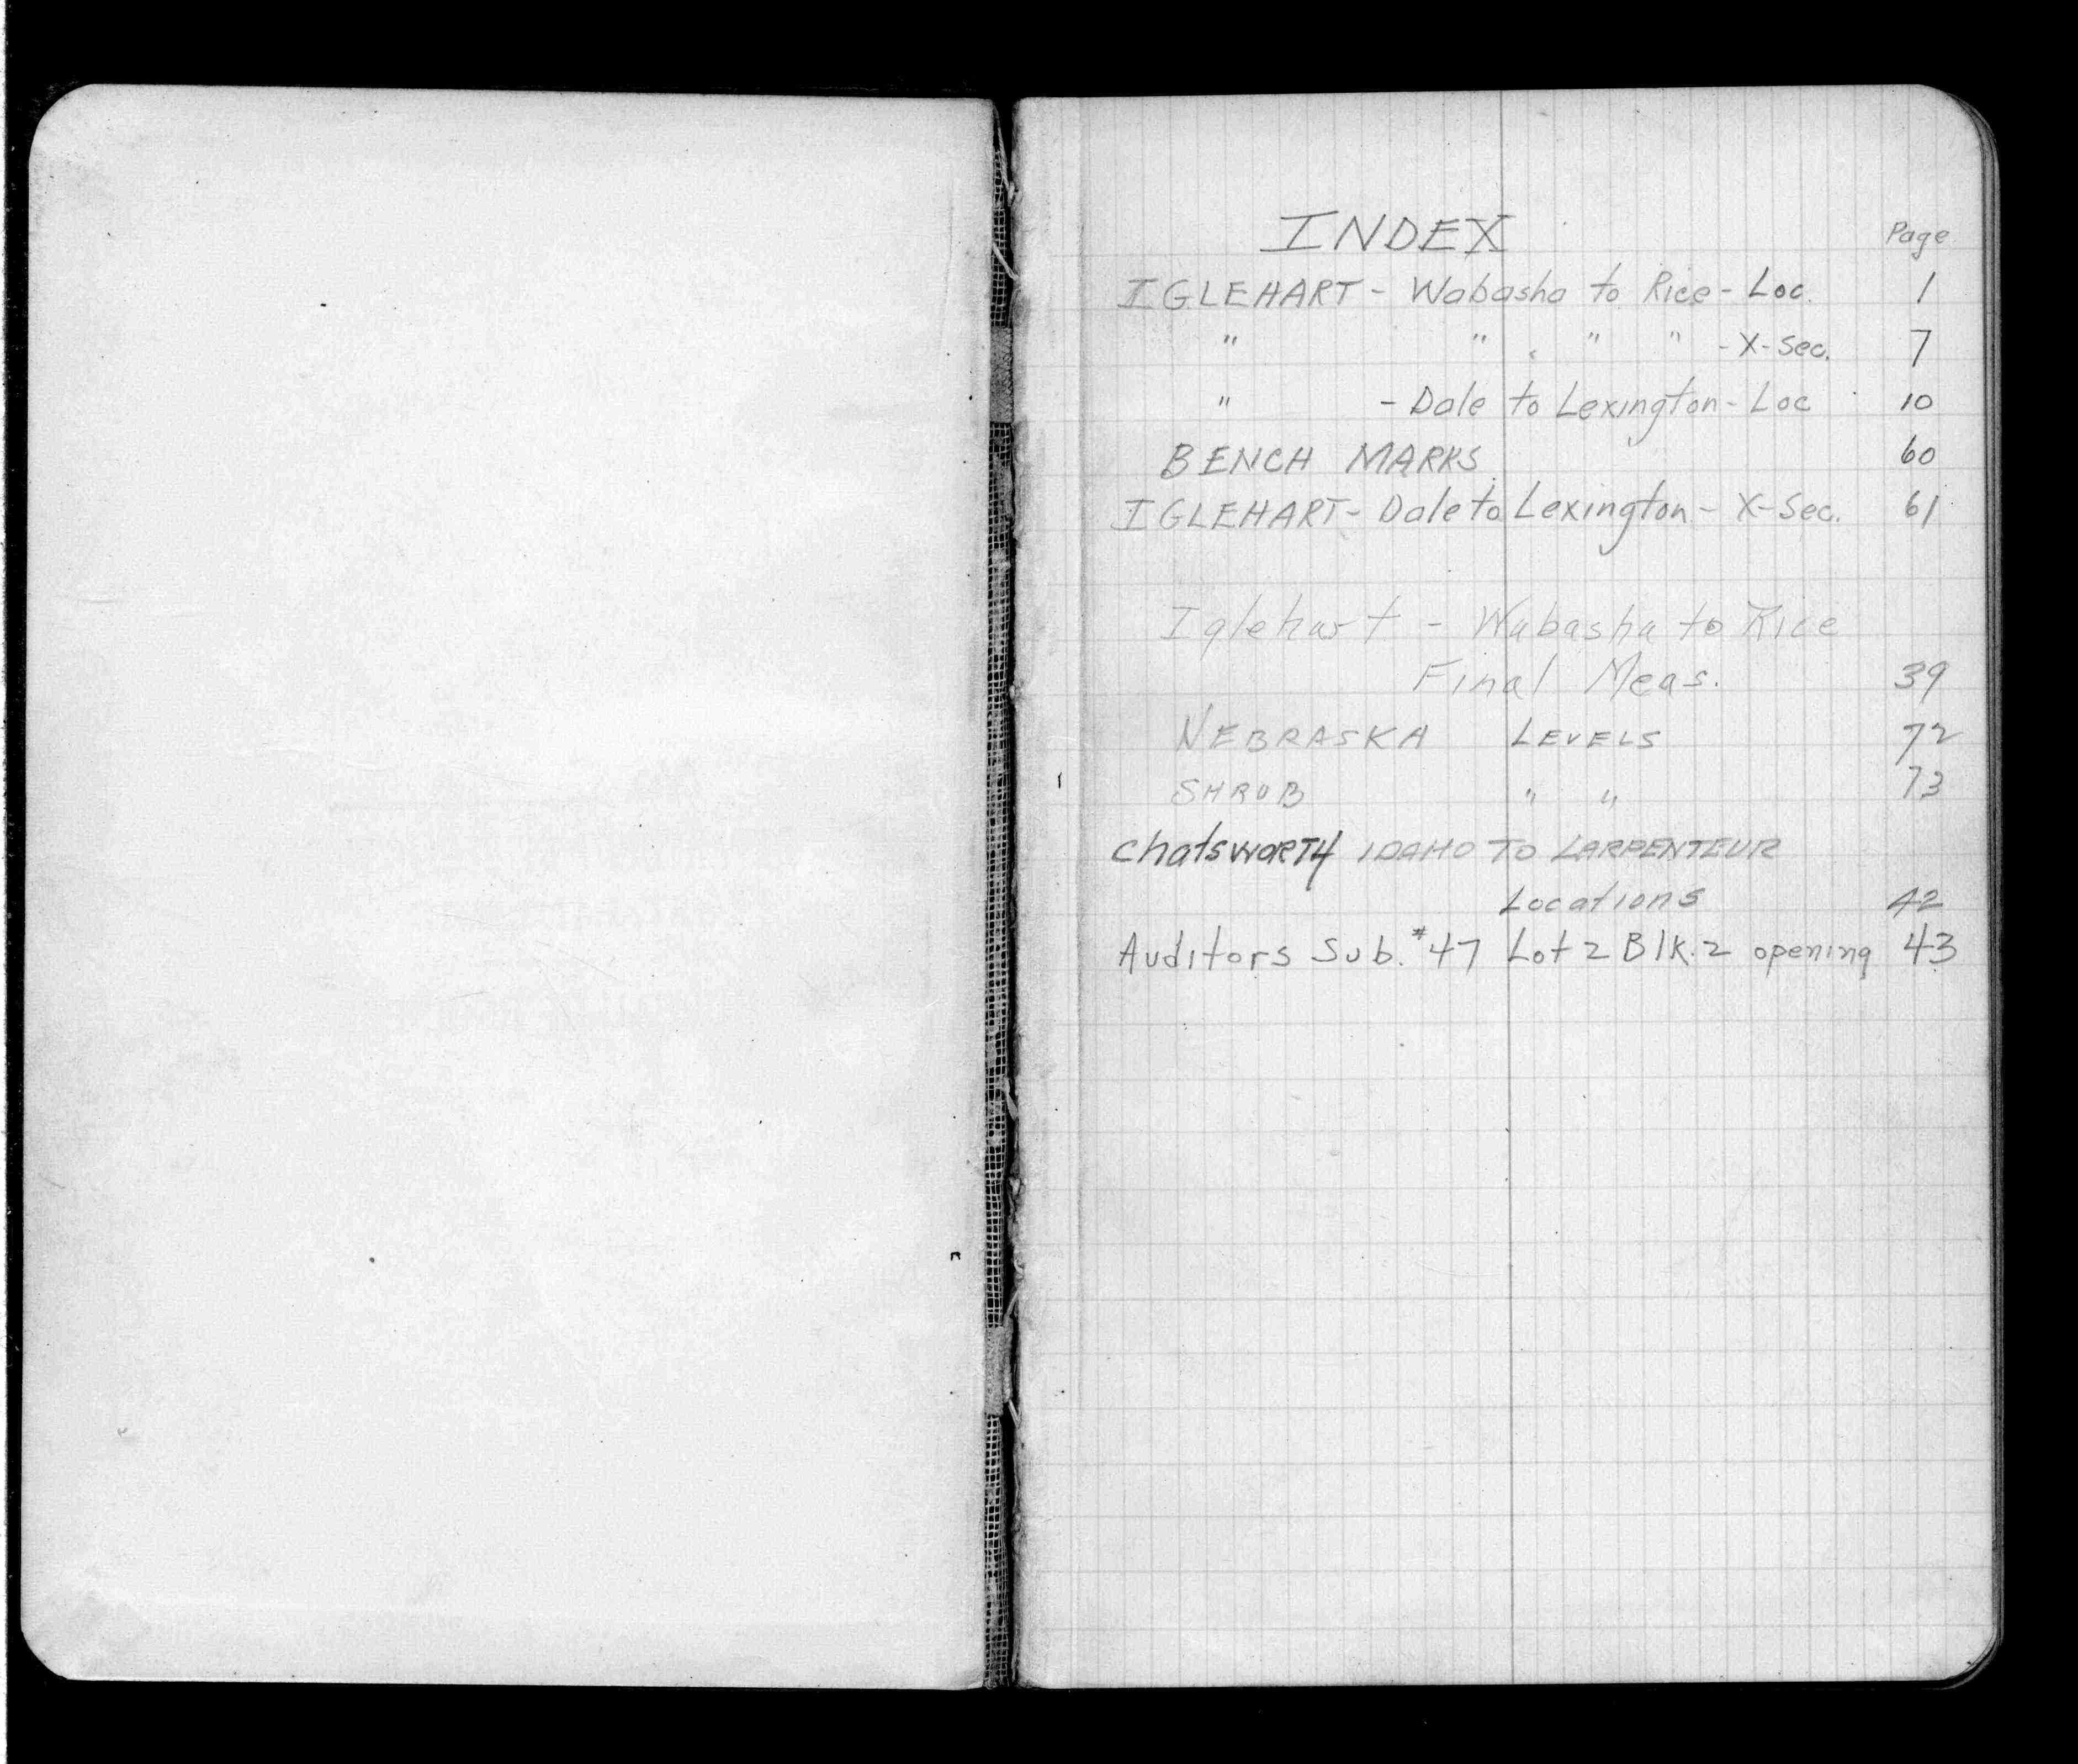 INDEX Page
IGLEHART - Wabasha to Rice - Loc. 1
" " " " - X-Sec. 7
" - Dale to Lexington - Loc 10
BENCH MARKS 60
IGLEHART - Dale to Lexington - X-Sec. 61
Iglehart - Wabasha to Rice
Final Meas. 39
NEBRASKA LEVELS 72
SHRUB " " 73
ChatswortH IDAHO TO LARPENTEUR
Locations 42
Auditors Sub. #47 Lot 2 Blk. 2 opening 43